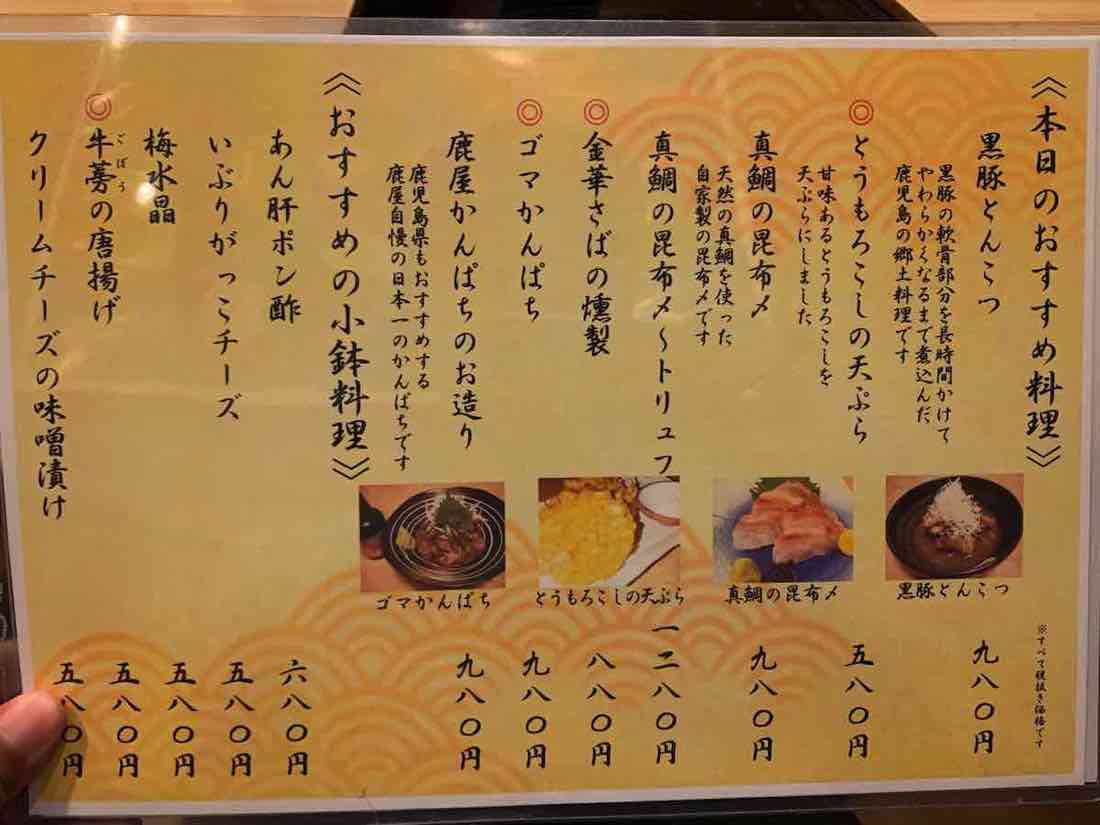 《本日のおすすめ料理》
※すべて税抜き価格です
黒豚とんこつ
九八〇円
黒豚の軟骨部分を長時間かけて
やわらかくなるまで煮込んだ、
鹿児島の郷土料理です
◎とうもろこしの天ぷら
五八〇円
甘味あるとうもろこしを
天ぷらにしました
真鯛の昆布〆
九八〇円
天然の真鯛を使った
自家製の昆布〆です
真鯛の昆布〆～トリュフ
一二八〇円
◎金華さばの燻製
八八〇円
◎ゴマかんぱち
九八〇円
鹿屋かんぱちのお造り
九八〇円
鹿児島県もおすすめする
鹿屋自慢の日本一のかんぱちです
黒豚とんこつ
真鯛の昆布〆
とうもろこしの天ぷら
ゴマかんぱち
《おすすめの小鉢料理》
あん肝ポン酢
六八〇円
いぶりがっこチーズ
五八〇円
梅水晶
五八〇円
◎牛蒡の唐揚げ
ごぼう
五八〇円
クリームチーズの味噌漬け
五八〇円